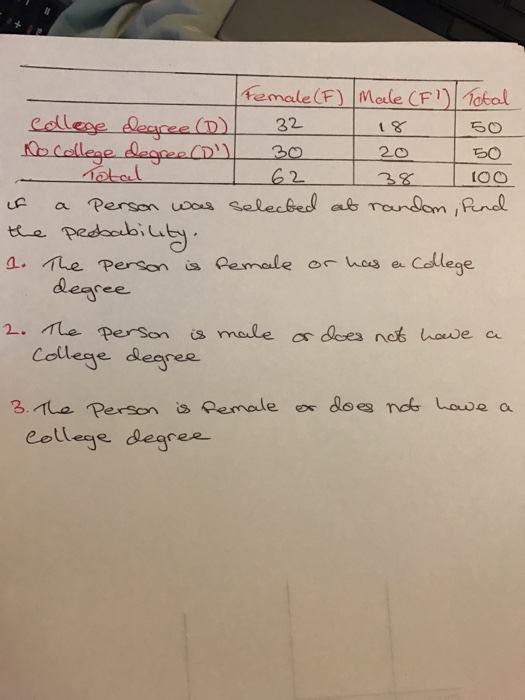 Female (F) Male (F') Total
College degree (D) 32 18 50
No College degree (D') 30 20 50
Total 62 38 100
if a person was selected at random, find
the probability.
1. The person is female or has a College
degree
2. The person is male or does not have a
College degree
3. The person is female or does not have a
College degree